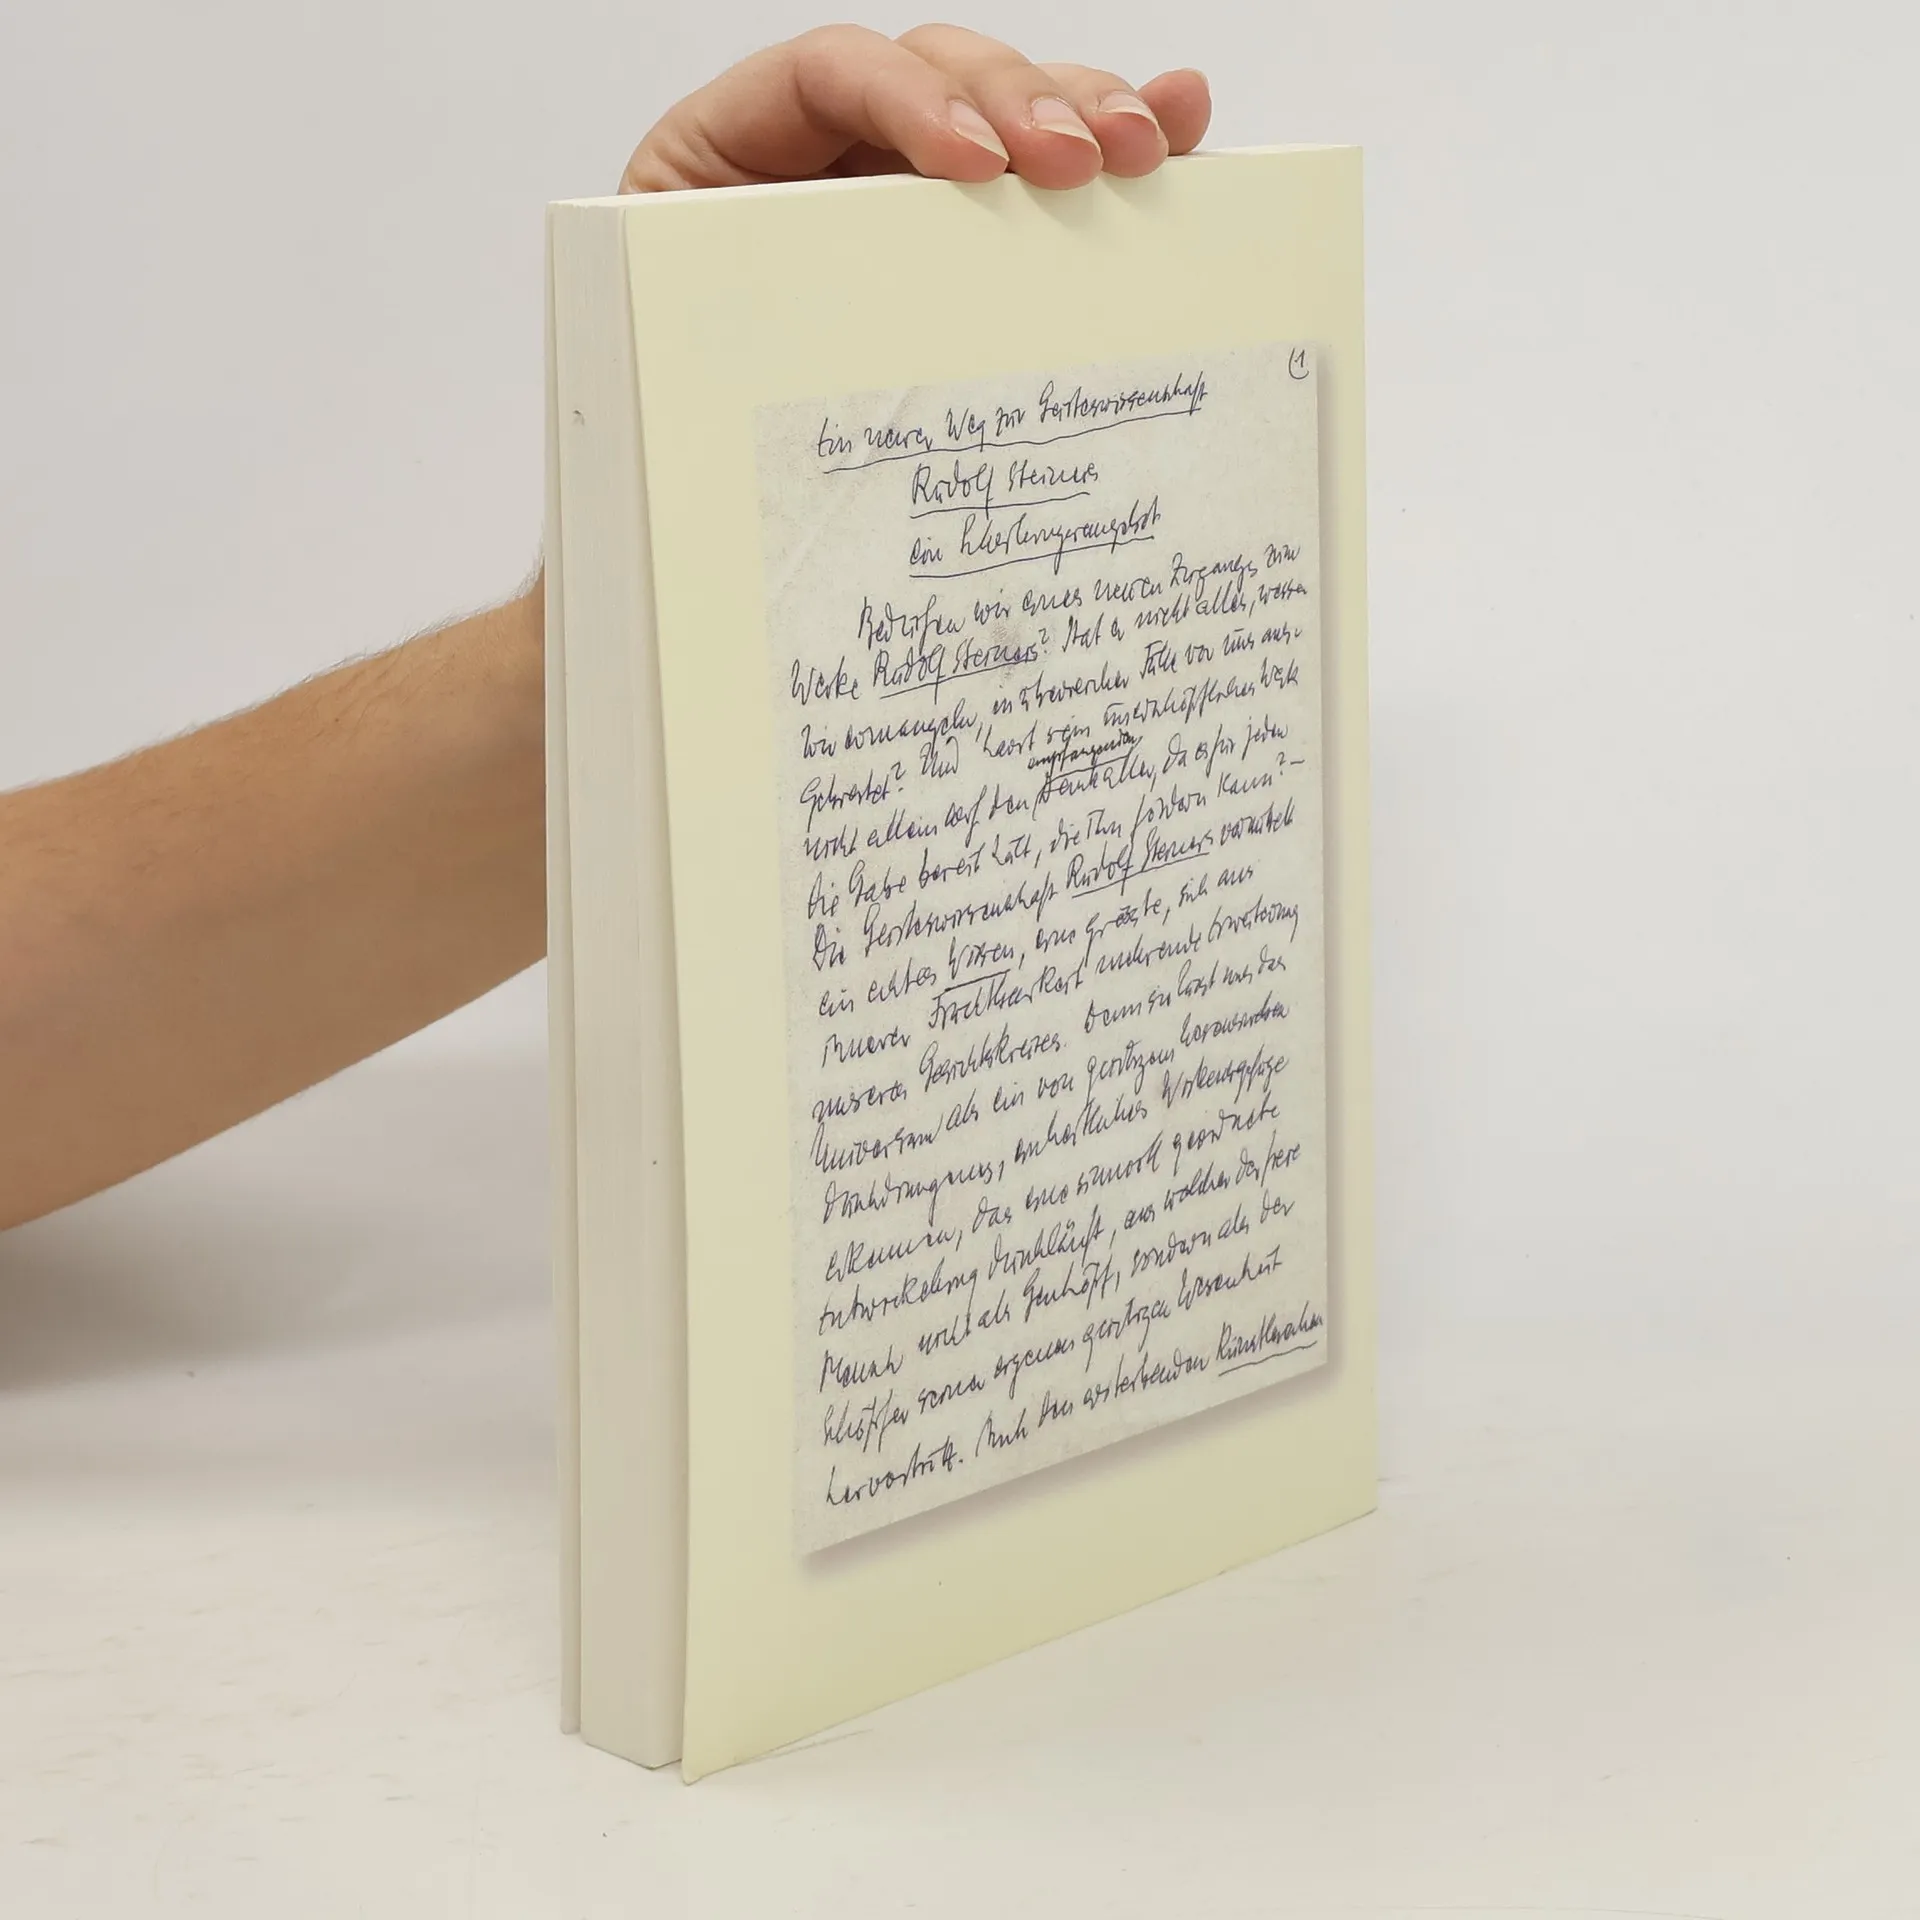 (1
Ein neuer Weg zur Geisteswissenschaft
Rudolf Steiners
ein Schulungsangebot
Bedürfen wir eines neuen Zuganges zum
Werke Rudolf Steiners? Hat er nicht alles, wessen
wir ermangeln, in überreicher Fülle vor uns aus-
gebreitet? Und harrt sein unerschöpfliches Werk
empfangenden
nicht allein auf den Dank aller, da es für jeden
die Gabe bereit hält, die ihn fördern kann? –
Die Geisteswissenschaft Rudolf Steiners vermittelt
ein echtes Wissen, eine größte, sich aus
innerer Fruchtbarkeit mehrende Erweiterung
unseres Gesichtskreises. Denn sie lässt uns das
Universum als ein von geistigem
durchdrungenes, einheitliches Wirkensgefüge
erkennen, das eine sinnvoll geordnete
Entwickelung durchläuft, aus welcher der freie
Mensch nicht als Geschöpf, sondern als der
Schöpfer seiner eigenen geistigen Wesenheit
hervortritt. Auch den Künstlerischen